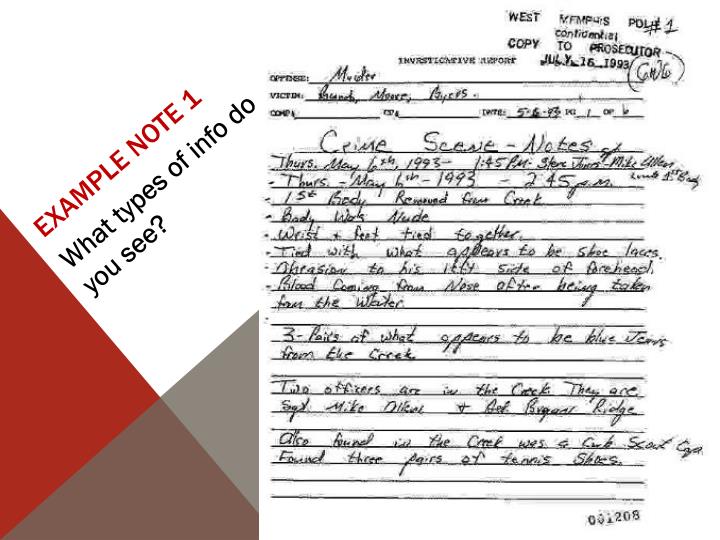 EXAMPLE NOTE 1
What types of info do
you see?
WEST MEMPHIS POL #1
confidential
COPY TO PROSECUTOR
JULY 16, 1993
INVESTIGATIVE REPORT
OFFENSE: Murder
VICTIM: Branch, Moore, Byers.
COMP# CT# DATE: 5-6-93 PG 1 OF 6
Crime Scene - Notes
Thurs. May 6th, 1993 - 1:45 P.M. Steve Jones - Mike Allen
- Thurs. - May 6th - 1993 - 2:45 p.m. 1st Body
- 1st Body Removed from Creek
- Body Was Nude
- Wrist & feet tied together.
- Tied with what appears to be shoe laces.
- Abrasion to his left side of forehead
- Blood Coming from Nose after being taken
from the Water
3-Pairs of what appears to be blue Jeans
from the Creek.
Two officers are in the Creek They are
Sgt. Mike Allen & Det. Bryan Ridge
Also found in the Creek was a Cub Scout Cap.
Found three pairs of tennis Shoes.
001208